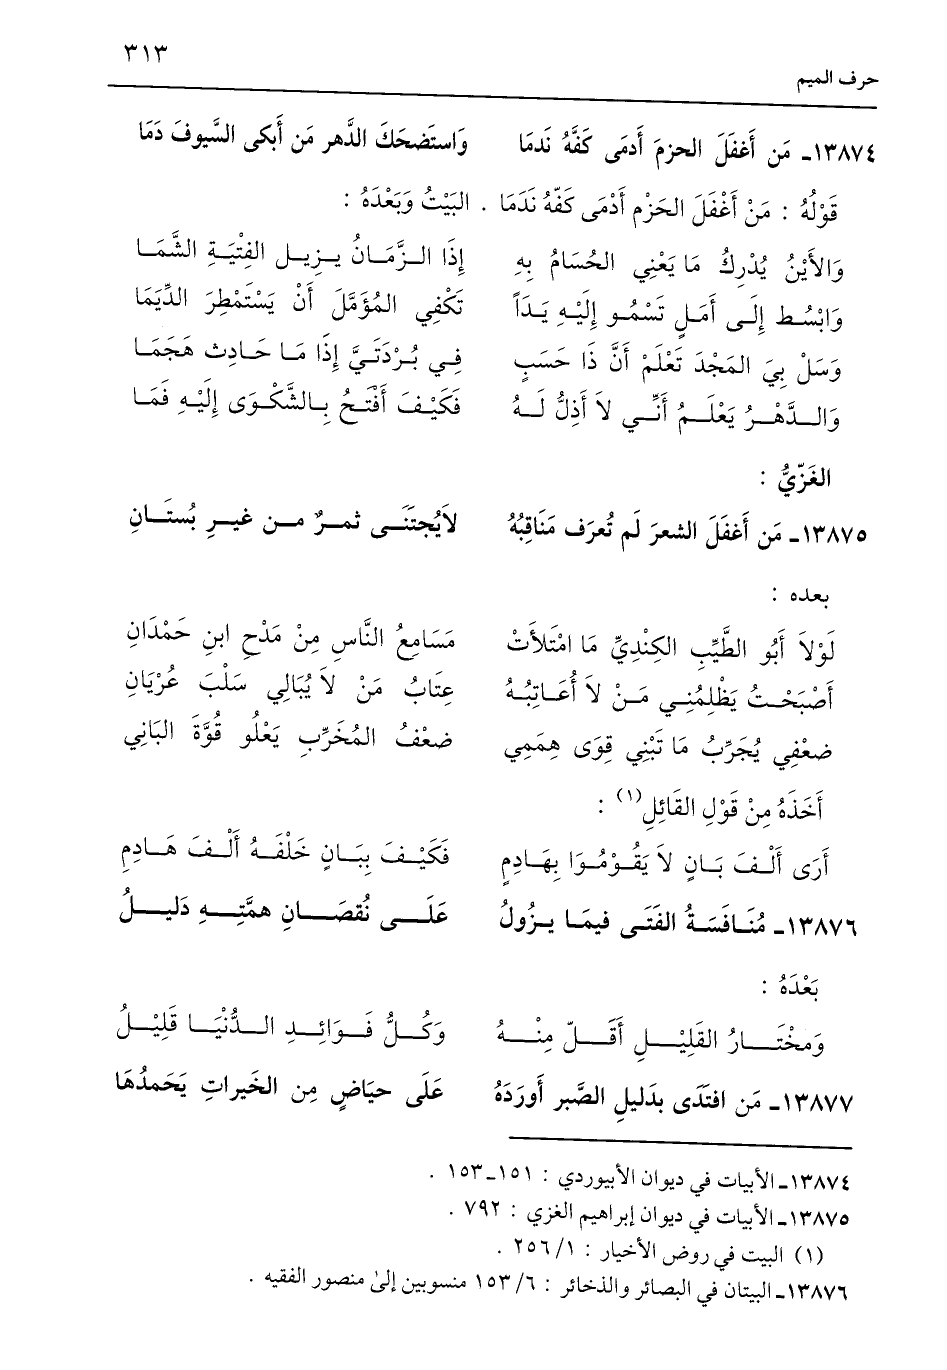 ٣١٣
حرف الميم
١٣٨٧٤ـ مَن أَغفَلَ الحزمَ أَدمَى كَفَّهُ نَدمَا وَاستَضحَكَ الدَّهر مَن أَبكى السَّيوفَ دَمَا
قَوْلُهُ : مَنْ أَغْفَلَ الحَزْم أَدْمَى كَفّهُ نَدَمَا . البَيْتُ وَبَعْدَهُ :
وَالأَيْنُ يُدْرِكُ مَا يَعْنِي الحُسَامُ بِهِ إِذَا الزَّمَانُ يزيل الفِتْيَةِ الشَّمَا
وَابْسُط إِلَى أَمَلٍ تَسْمُو إِلَيْهِ يَدَاً تَكْفِي المُؤَمَّلَ أَنْ يَسْتَمْطِرَ الدِّيَمَا
وَسَلْ بِيَ المَجْدَ تَعْلَمْ أَنَّ ذَا حَسَبٍ فِي بُرْدَتَيَّ إِذَا مَا حَادِث هَجَمَا
وَالدَّهْرُ يَعْلَمُ أَنِّي لاَ أَذِلُّ لَهُ فَكَيْفَ أَفْتَحُ بِالشَّكْوَى إِلَيْهِ فَمَا
الغَزِّيُّ :
١٣٨٧٥ـ مَن أَغفَلَ الشعرَ لَم تُعرَف مَنَاقِبُهُ لاَيُجتَنَى ثمرٌ من غيرِ بُستَانِ
بعده :
لَوْلاَ أَبُو الطَّيِّبِ الكِنْدِيِّ مَا امْتَلأَتْ مَسَامِعُ النَّاسِ مِنْ مَدْحِ ابنِ حَمْدَانِ
أَصْبَحْتُ يَظْلِمُنِي مَنْ لاَ أُعَاتِبُهُ عِتَابُ مَنْ لاَ يُبَالِي سَلْبَ عُرْيَانِ
ضعْفِي يُجَرِّبُ مَا تَبْنِي قِوَى هِمَمِي ضعْفُ المُخَرِّبِ يَعْلُو قُوَّةَ البَانِي
أَخَذَهُ مِنْ قَوْلِ القَائِلِ(١) :
أَرَى أَلْفَ بَانٍ لاَ يَقُوْمُوَا بِهَادِمٍ فَكَيْفَ بِبَانٍ خَلْفَهُ أَلْفَ هَادِمِ
١٣٨٧٦ـ مُنَافَسَةُ الفَتَى فيمَا يزُولُ عَلَى نُقصَانِ همَّتِهِ دَليلُ
بَعْدَهُ :
وَمخْتَارُ القَلِيْلِ أَقَلّ مِنْهُ وَكُلُّ فَوَائِدِ الدُّنْيَا قَلِيْلُ
١٣٨٧٧ـ مَن افتَدَى بدَليلِ الصَّبر أَورَدَهُ عَلَى حيَاضٍ مِن الخَيراتِ يَحَمدُهَا
١٣٨٧٤ـ الأبيات في ديوان الأبيوردي : ١٥١ـ١٥٣ .
١٣٨٧٥ـ الأبيات في ديوان إبراهيم الغزي : ٧٩٢ .
(١) البيت في روض الأخيار : ١/ ٢٥٦ .
١٣٨٧٦ـ البيتان في البصائر والذخائر : ٦/ ١٥٣ منسوبين إلىٰ منصور الفقيه .